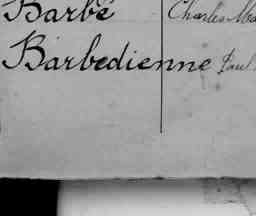 Barbé Charles
Barbedienne Paul